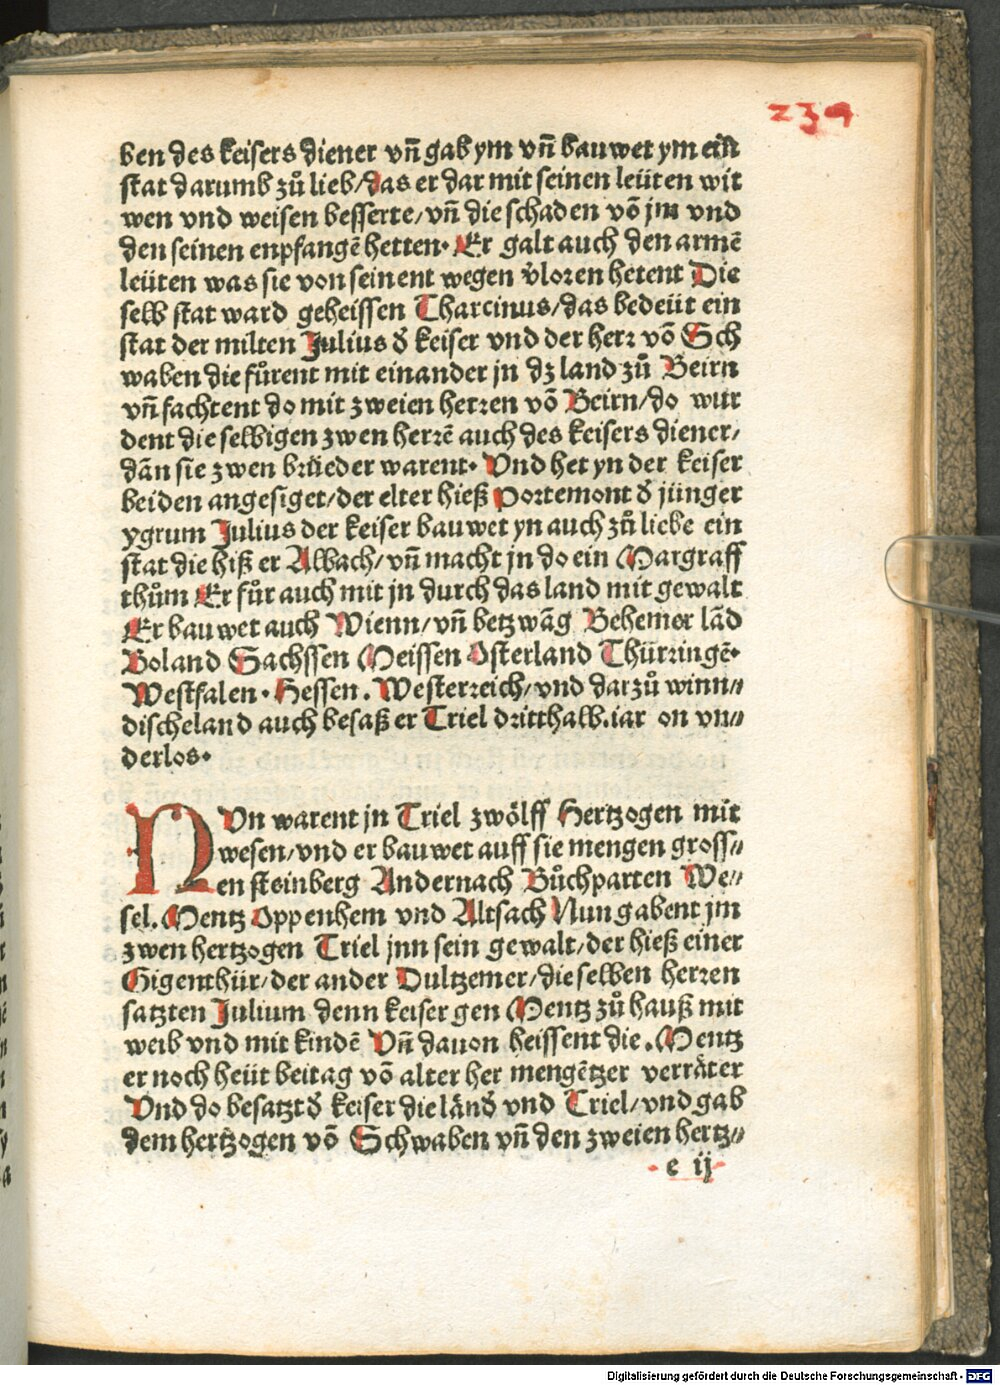 239
ben des keisers diener vñ gab ym vñ bauwet ym ein
stat darumb zů lieb/das er dar mit seinen leüten wit
wen vnd weisen besserte/vñ die schaden võ jm vnd
den seinen enpfangẽ hetten. Er galt auch den armẽ
leüten was sie von seinent wegen v̉loren hetent Die
selb stat ward geheissen Tharcinus/das bedeüt ein
stat der milten Julius d̉ keiser vnd der herr võ Sch
waben die fůrent mit einander jn dz land zů Beirn
vñ fachtent do mit zweien herren võ Beirn/do wur
dent die selbigen zwen herrẽ auch des keisers diener/
dãn sie zwen brüeder warent. Vnd het yn der keiser
beiden angesiget/der elter hieß Portemont d̉ jünger
ygrum Julius der keiser bauwet yn auch zů liebe ein
stat die hiß er Albach/vñ macht jn do ein Margraff
thům Er fůr auch mit jn durch das land mit gewalt
Er bauwet auch Wienn/vñ betzwãg Behemer lãd
Boland Sachssen Meissen Osterland Thürringẽ.
Westfalen. Hessen. Westerreich/vnd darzů winn//
discheland auch besaß er Triel dritthalb.iar on vn//
derlos.
NVn warent jn Triel zwölff Hertzogen mit
wesen/vnd er bauwet auff sie mengen gross//
en steinberg Andernach Bůchparten We//
sel. Mentz Oppenhem vnd Altsach Nun gabent jm
zwen hertzogen Triel jnn sein gewalt/der hieß einer
Gigenthür/der ander Dultzemer/die selben herren
satzten Julium denn keiser gen Mentz zů hauß mit
weib vnd mit kindẽ Vñ dauon heissent die. Mentz
er noch heüt beitag võ alter her mengẽtzer verräter
Vnd do besatzt d̉ keiser die länd̉ vnd Triel/vnd gab
dem hertzogen võ Schwaben vñ den zweien hertz//
e ij
Digitalisierung gefördert durch die Deutsche Forschungsgemeinschaft - DFG